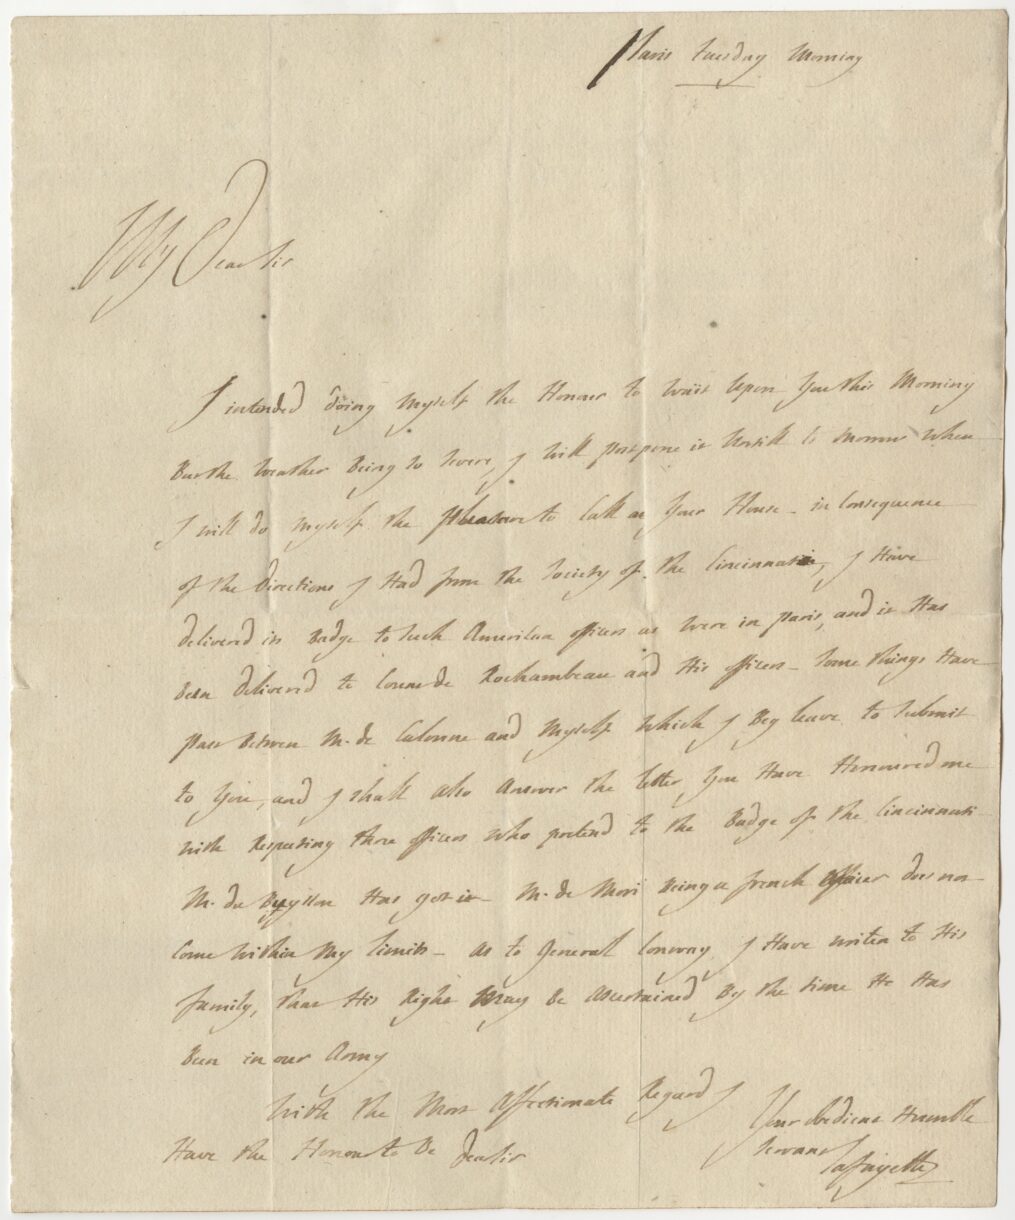 Paris tuesday Morning
My Dear sir
I intended doing Myself the Honour to Wait Upon You this Morning
But the Weather Being so severe, I will postpone it Untill to Morrow When
I will do Myself the pleasure to Call on Your House - in Consequence
of the Directions I Had from the Society of the Cincinnati, I Have
delivered its Badge to such American officers as were in paris, and it Has
Been delivered to Count de Rochambeau and His officers - some things Have
past Between M. de Calonne and Myself Which I Beg leave to submit
to You, and I shall also Answer the letter You Have Honoured me
with Respecting those officers who pretend to the Badge of the Cincinnati -
M. du Has got it - M. de Being a french officer does not
Come Within My limits - as to General Conway I Have writen to His
family, that His Right May Be Ascertained By the time He Has
Been in our Army
With the Most Affectionate Regard I
Have the Honour to Be Dear sir
Your obedient Humble
servant
Lafayette